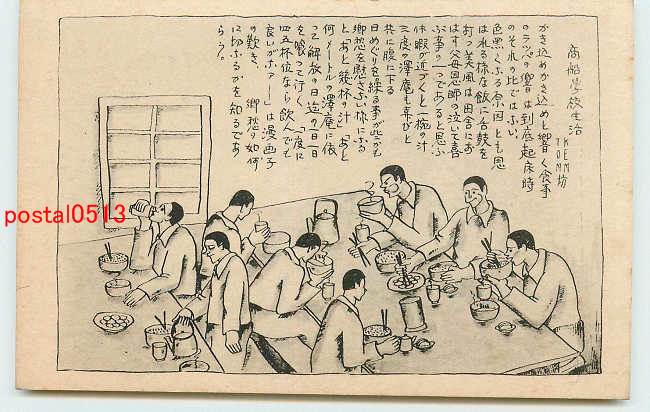 商船学校生活
TKEN坊
TOMM
かき込めかき込めと響く食事
のラッパの響は到底起床時
のそれの比ではない。
色黒くなる原因とも思
はれる様な飯に舌鼓を
打つ美風は田舎にお
はす父母恩師の泣いて喜
ぶ事の一つであると思ふ
休暇が近づくと一椀の汁
三度の澤庵も喜びと
共に腹に下る
日めぐりを繰る事が些かも
郷愁を慰さない様になる
と「あと幾杯の汁」「あと
何メートルの澤庵に依
って解放の日迄の一日一日
を喰って行く、「一度に
四五杯位なら飲んでも
良いがネァー」は漫画子
の歎き、郷愁の如何
に切なるかを知るであ
らう。
postal0513